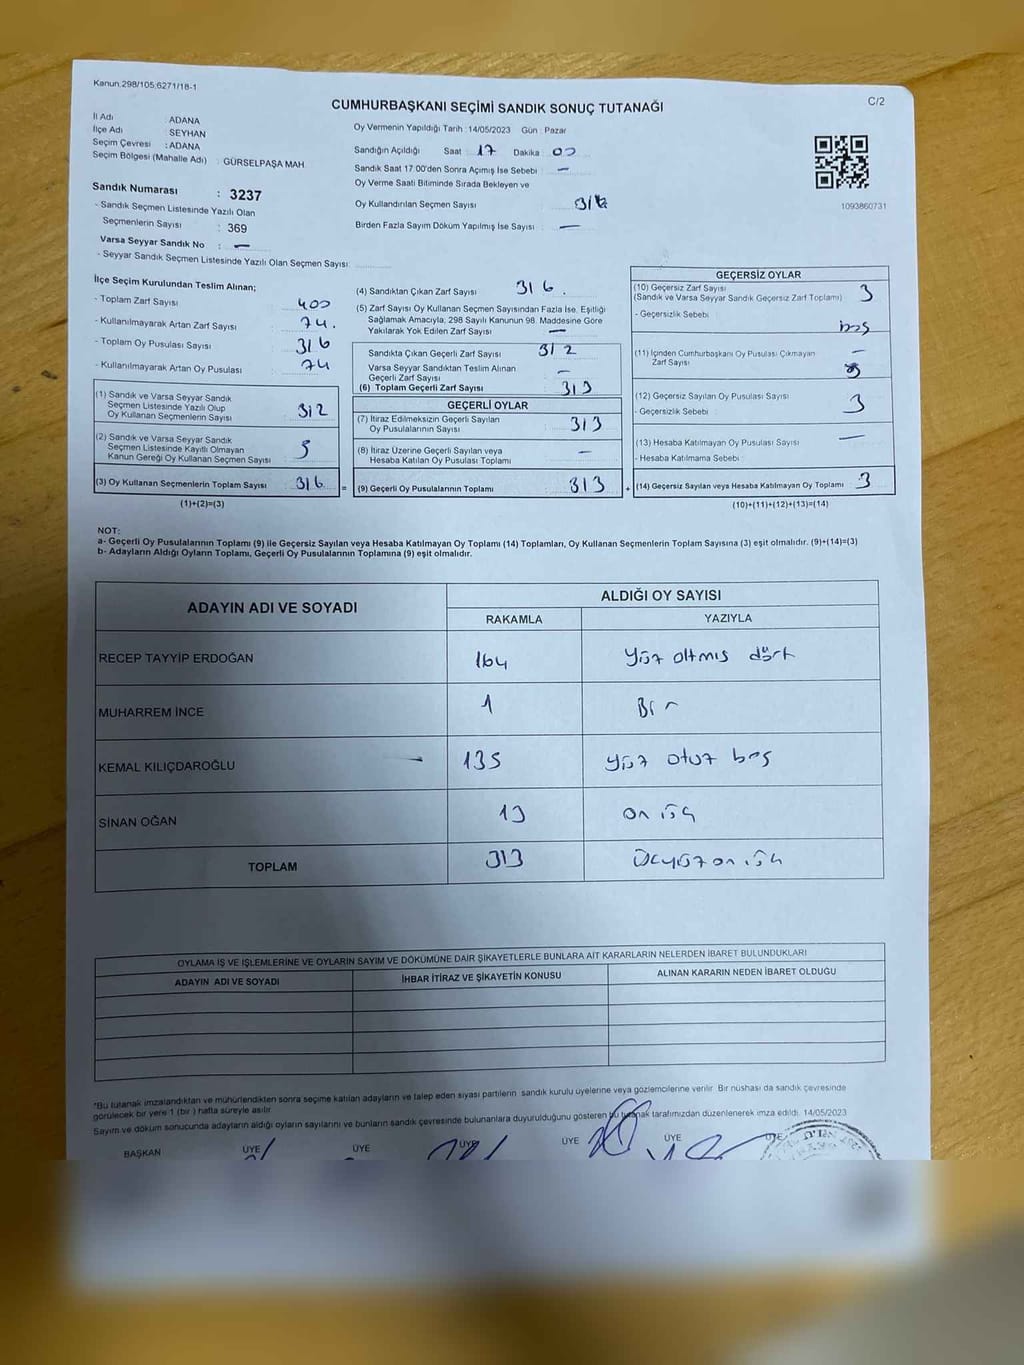 Kanun 298/105,6271/18-1
C/2
CUMHURBAŞKANI SEÇİMİ SANDIK SONUÇ TUTANAĞI
İl Adı : ADANA
İlçe Adı : SEYHAN
Seçim Çevresi : ADANA
Seçim Bölgesi (Mahalle Adı) : GÜRSELPAŞA MAH.
Sandık Numarası : 3237
- Sandık Seçmen Listesinde Yazılı Olan
Seçmenlerin Sayısı : 369
Varsa Seyyar Sandık No : —
- Seyyar Sandık Seçmen Listesinde Yazılı Olan Seçmen Sayısı:
Oy Vermenin Yapıldığı Tarih : 14/05/2023 Gün : Pazar
Sandığın Açıldığı Saat : 17 Dakika : 00
Sandık Saat 17:00'den Sonra Açımış İse Sebebi : —
Oy Verme Saati Bitiminde Sırada Bekleyen ve
Oy Kullandırılan Seçmen Sayısı
Birden Fazla Sayım Döküm Yapılmış İse Sayısı : —
1093860731
İlçe Seçim Kurulundan Teslim Alınan;
- Toplam Zarf Sayısı : 400
- Kullanılmayarak Artan Zarf Sayısı : 74.
- Toplam Oy Pusulası Sayısı : 316
- Kullanılmayarak Artan Oy Pusulası : 74
(1) Sandık ve Varsa Seyyar Sandık
Seçmen Listesinde Yazılı Olup
Oy Kullanan Seçmenlerin Sayısı : 312
(2) Sandık ve Varsa Seyyar Sandık
Seçmen Listesinde Kayıtlı Olmayan
Kanun Gereği Oy Kullanan Seçmen Sayısı
(3) Oy Kullanan Seçmenlerin Toplam Sayısı : 316
(1)+(2)=(3)
=
(4) Sandıktan Çıkan Zarf Sayısı : 316.
(5) Zarf Sayısı Oy Kullanan Seçmen Sayısından Fazla İse, Eşitliği
Sağlamak Amacıyla; 298 Sayılı Kanunun 98. Maddesine Göre
Yakılarak Yok Edilen Zarf Sayısı : —
Sandıkta Çıkan Geçerli Zarf Sayısı : 312
Varsa Seyyar Sandıktan Teslim Alınan
Geçerli Zarf Sayısı : —
(6) Toplam Geçerli Zarf Sayısı : 313
GEÇERLİ OYLAR
(7) İtiraz Edilmeksizin Geçerli Sayılan
Oy Pusulalarının Sayısı : 313
(8) İtiraz Üzerine Geçerli Sayılan veya
Hesaba Katılan Oy Pusulası Toplamı : —
(9) Geçerli Oy Pusulalarının Toplamı : 313
+
GEÇERSİZ OYLAR
(10) Geçersiz Zarf Sayısı : 3
(Sandık ve Varsa Seyyar Sandık Geçersiz Zarf Toplamı)
- Geçersizlik Sebebi :
(11) İçinden Cumhurbaşkanı Oy Pusulası Çıkmayan
Zarf Sayısı : —
(12) Geçersiz Sayılan Oy Pusulası Sayısı : 3
- Geçersizlik Sebebi :
(13) Hesaba Katılmayan Oy Pusulası Sayısı : —
- Hesaba Katılmama Sebebi :
(14) Geçersiz Sayılan veya Hesaba Katılmayan Oy Toplamı : 3
(10)+(11)+(12)+(13)=(14)
NOT:
a- Geçerli Oy Pusulalarının Toplamı (9) ile Geçersiz Sayılan veya Hesaba Katılmayan Oy Toplamı (14) Toplamları, Oy Kullanan Seçmenlerin Toplam Sayısına (3) eşit olmalıdır. (9)+(14)=(3)
b- Adayların Aldığı Oyların Toplamı, Geçerli Oy Pusulalarının Toplamına (9) eşit olmalıdır.
ADAYIN ADI VE SOYADI
ALDIĞI OY SAYISI
RAKAMLA YAZIYLA
RECEP TAYYİP ERDOĞAN 164 yüz altmış dört
MUHARREM İNCE 1 Bir
KEMAL KILIÇDAROĞLU 135 yüz otuz beş
SİNAN OĞAN 13 on üç
TOPLAM 313 Üçyüz on üç
OYLAMA İŞ VE İŞLEMLERİNE VE OYLARIN SAYIM VE DÖKÜMÜNE DAİR ŞİKAYETLERLE BUNLARA AİT KARARLARIN NELERDEN İBARET BULUNDUKLARI
ADAYIN ADI VE SOYADI İHBAR İTİRAZ VE ŞİKAYETİN KONUSU ALINAN KARARIN NEDEN İBARET OLDUĞU
*Bu tutanak imzalandıktan ve mühürlendikten sonra seçime katılan adayların ve talep eden siyasi partilerin sandık kurulu üyelerine veya gözlemcilerine verilir. Bir nüshası da sandık çevresinde
görülecek bir yere 1 (bir) hafta süreyle asılır.
Sayım ve döküm sonucunda adayların aldığı oyların sayılarını ve bunların sandık çevresinde bulunanlara duyurulduğunu gösteren bu tutanak tarafımızdan düzenlenerek imza edildi. 14/05/2023
BAŞKAN ÜYE ÜYE ÜYE ÜYE ÜYE ÜYE